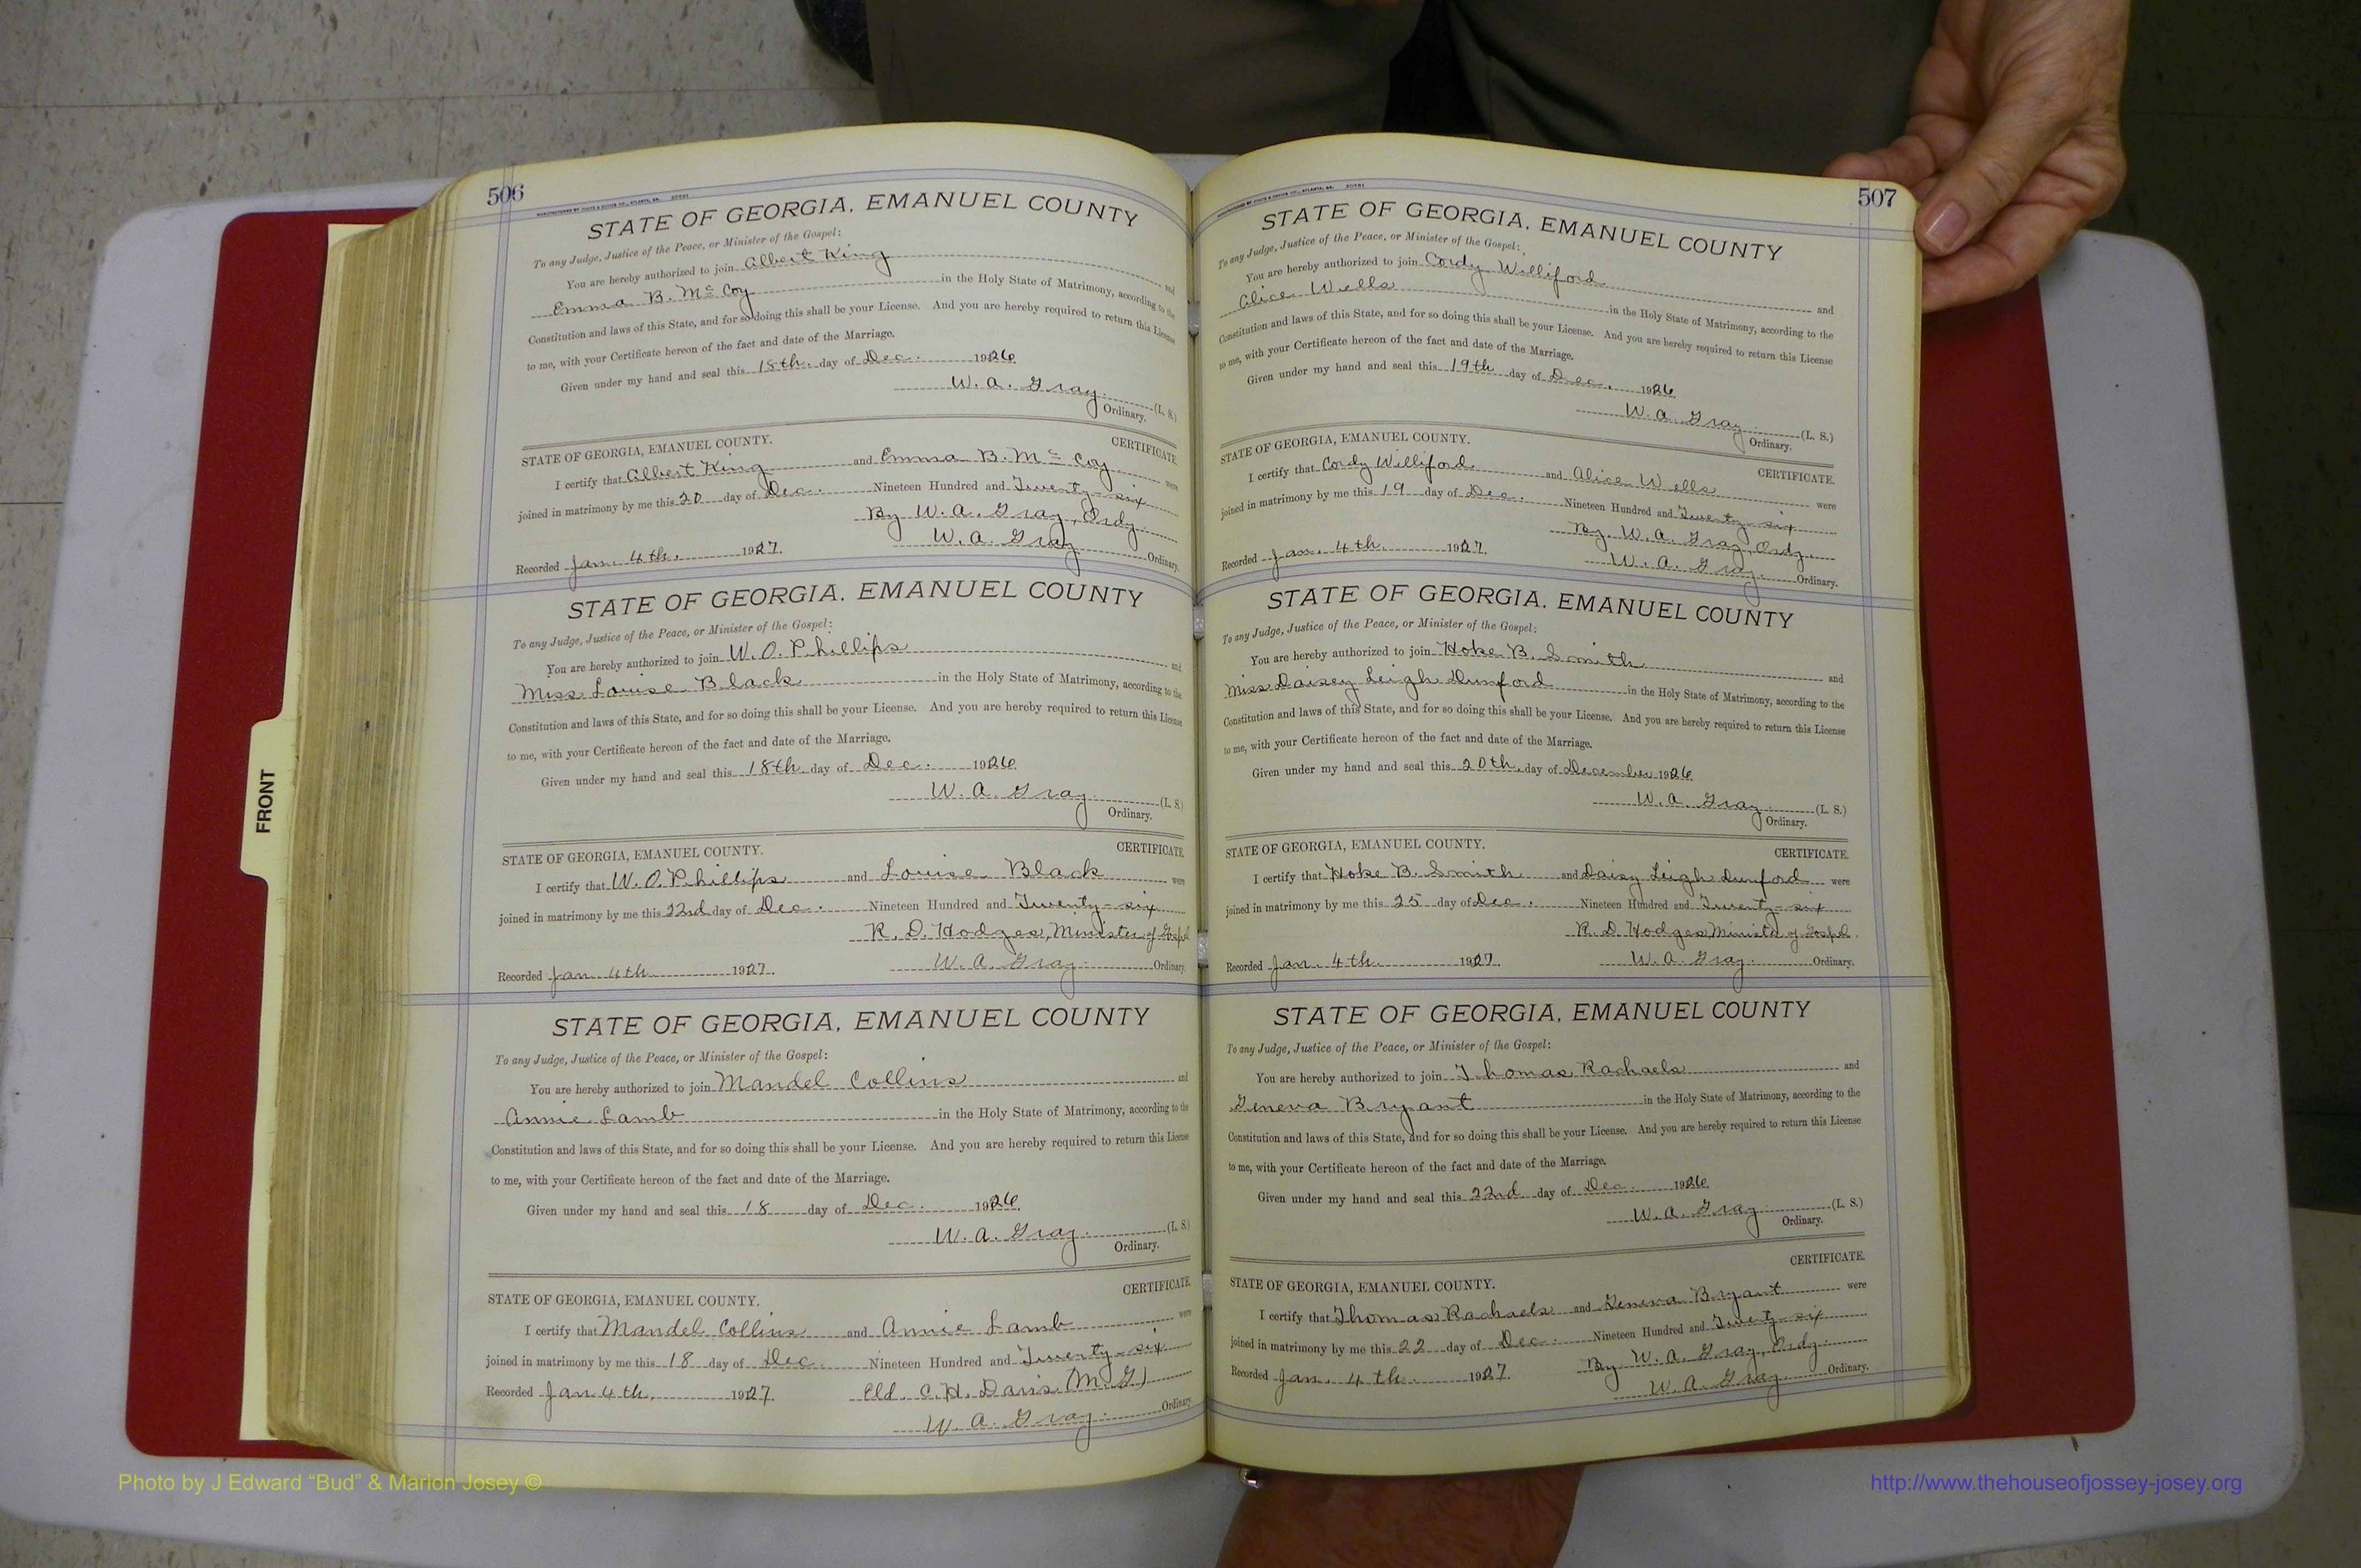 506
STATE OF GEORGIA, EMANUEL COUNTY
To any Judge, Justice of the Peace, or Minister of the Gospel:
You are hereby authorized to join Albert King and
Emma B. McCoy in the Holy State of Matrimony, according to the
Constitution and laws of this State, and for so doing this shall be your License. And you are hereby required to return this License
to me, with your Certificate hereon of the fact and date of the Marriage.
Given under my hand and seal this 18th. day of Dec. 1926
W. A. Gray (L. S.)
Ordinary.
STATE OF GEORGIA, EMANUEL COUNTY. CERTIFICATE
I certify that Albert King and Emma B. McCoy were
joined in matrimony by me this 20 day of Dec. Nineteen Hundred and Twenty-six
By W. A. Gray, Ordy.
Recorded Jan. 4th. 1927. W. A. Gray Ordinary.
STATE OF GEORGIA, EMANUEL COUNTY
To any Judge, Justice of the Peace, or Minister of the Gospel:
You are hereby authorized to join W. O. Phillips and
Miss Louise Black in the Holy State of Matrimony, according to the
Constitution and laws of this State, and for so doing this shall be your License. And you are hereby required to return this License
to me, with your Certificate hereon of the fact and date of the Marriage.
Given under my hand and seal this 18th day of Dec. 1926.
W. A. Gray. (L. S.)
Ordinary.
STATE OF GEORGIA, EMANUEL COUNTY. CERTIFICATE
I certify that W. O. Phillips and Louise Black were
joined in matrimony by me this 22nd day of Dec. Nineteen Hundred and Twenty-six
R. D. Hodges, Minister of Gospel
Recorded Jan. 4th 1927. W. A. Gray. Ordinary.
STATE OF GEORGIA, EMANUEL COUNTY
To any Judge, Justice of the Peace, or Minister of the Gospel:
You are hereby authorized to join Mandel Collins and
Annie Lamb in the Holy State of Matrimony, according to the
Constitution and laws of this State, and for so doing this shall be your License. And you are hereby required to return this License
to me, with your Certificate hereon of the fact and date of the Marriage.
Given under my hand and seal this 18 day of Dec. 1926.
W. A. Gray. (L. S.)
Ordinary.
CERTIFICATE
STATE OF GEORGIA, EMANUEL COUNTY.
I certify that Mandel Collins and Annie Lamb were
joined in matrimony by me this 18 day of Dec. Nineteen Hundred and Twenty-six
Recorded Jan 4th. 1927. Eld. C. H. Davis (M. G)
W. A. Gray. Ordinary
507
STATE OF GEORGIA, EMANUEL COUNTY
To any Judge, Justice of the Peace, or Minister of the Gospel:
You are hereby authorized to join Cordy Williford and
Alice Wells in the Holy State of Matrimony, according to the
Constitution and laws of this State, and for so doing this shall be your License. And you are hereby required to return this License
to me, with your Certificate hereon of the fact and date of the Marriage.
Given under my hand and seal this 19th day of Dec. 1926.
W. A. Gray (L. S.)
Ordinary.
STATE OF GEORGIA, EMANUEL COUNTY. CERTIFICATE.
I certify that Cordy Williford and Alice Wells were
joined in matrimony by me this 19 day of Dec. Nineteen Hundred and Twenty-six
By W. A. Gray, Ordy.
Recorded Jan. 4th. 1927. W. A. Gray. Ordinary.
STATE OF GEORGIA, EMANUEL COUNTY
To any Judge, Justice of the Peace, or Minister of the Gospel:
You are hereby authorized to join Hoke B. Smith and
Miss Daisey Leigh Durford in the Holy State of Matrimony, according to the
Constitution and laws of this State, and for so doing this shall be your License. And you are hereby required to return this License
to me, with your Certificate hereon of the fact and date of the Marriage.
Given under my hand and seal this 20th. day of December 1926
W. A. Gray (L. S.)
Ordinary.
STATE OF GEORGIA, EMANUEL COUNTY. CERTIFICATE.
I certify that Hoke B. Smith and Daisy Leigh Durford were
joined in matrimony by me this 25 day of Dec. Nineteen Hundred and Twenty-six
R. D. Hodges Minister of Gospel.
Recorded Jan. 4th. 1927. W. A. Gray. Ordinary.
STATE OF GEORGIA, EMANUEL COUNTY
To any Judge, Justice of the Peace, or Minister of the Gospel:
You are hereby authorized to join Thomas Rachaels and
Geneva Bryant in the Holy State of Matrimony, according to the
Constitution and laws of this State, and for so doing this shall be your License. And you are hereby required to return this License
to me, with your Certificate hereon of the fact and date of the Marriage.
Given under my hand and seal this 22nd day of Dec. 1926.
W. A. Gray (L. S.)
Ordinary.
CERTIFICATE.
STATE OF GEORGIA, EMANUEL COUNTY.
I certify that Thomas Rachaels and Geneva Bryant were
joined in matrimony by me this 22 day of Dec. Nineteen Hundred and Twenty-six
By W. A. Gray, Ordy.
Recorded Jan. 4th. 1927. W. A. Gray. Ordinary.
FRONT
Photo by J Edward “Bud” & Marion Josey ©
http://www.thehouseofjossey-josey.org